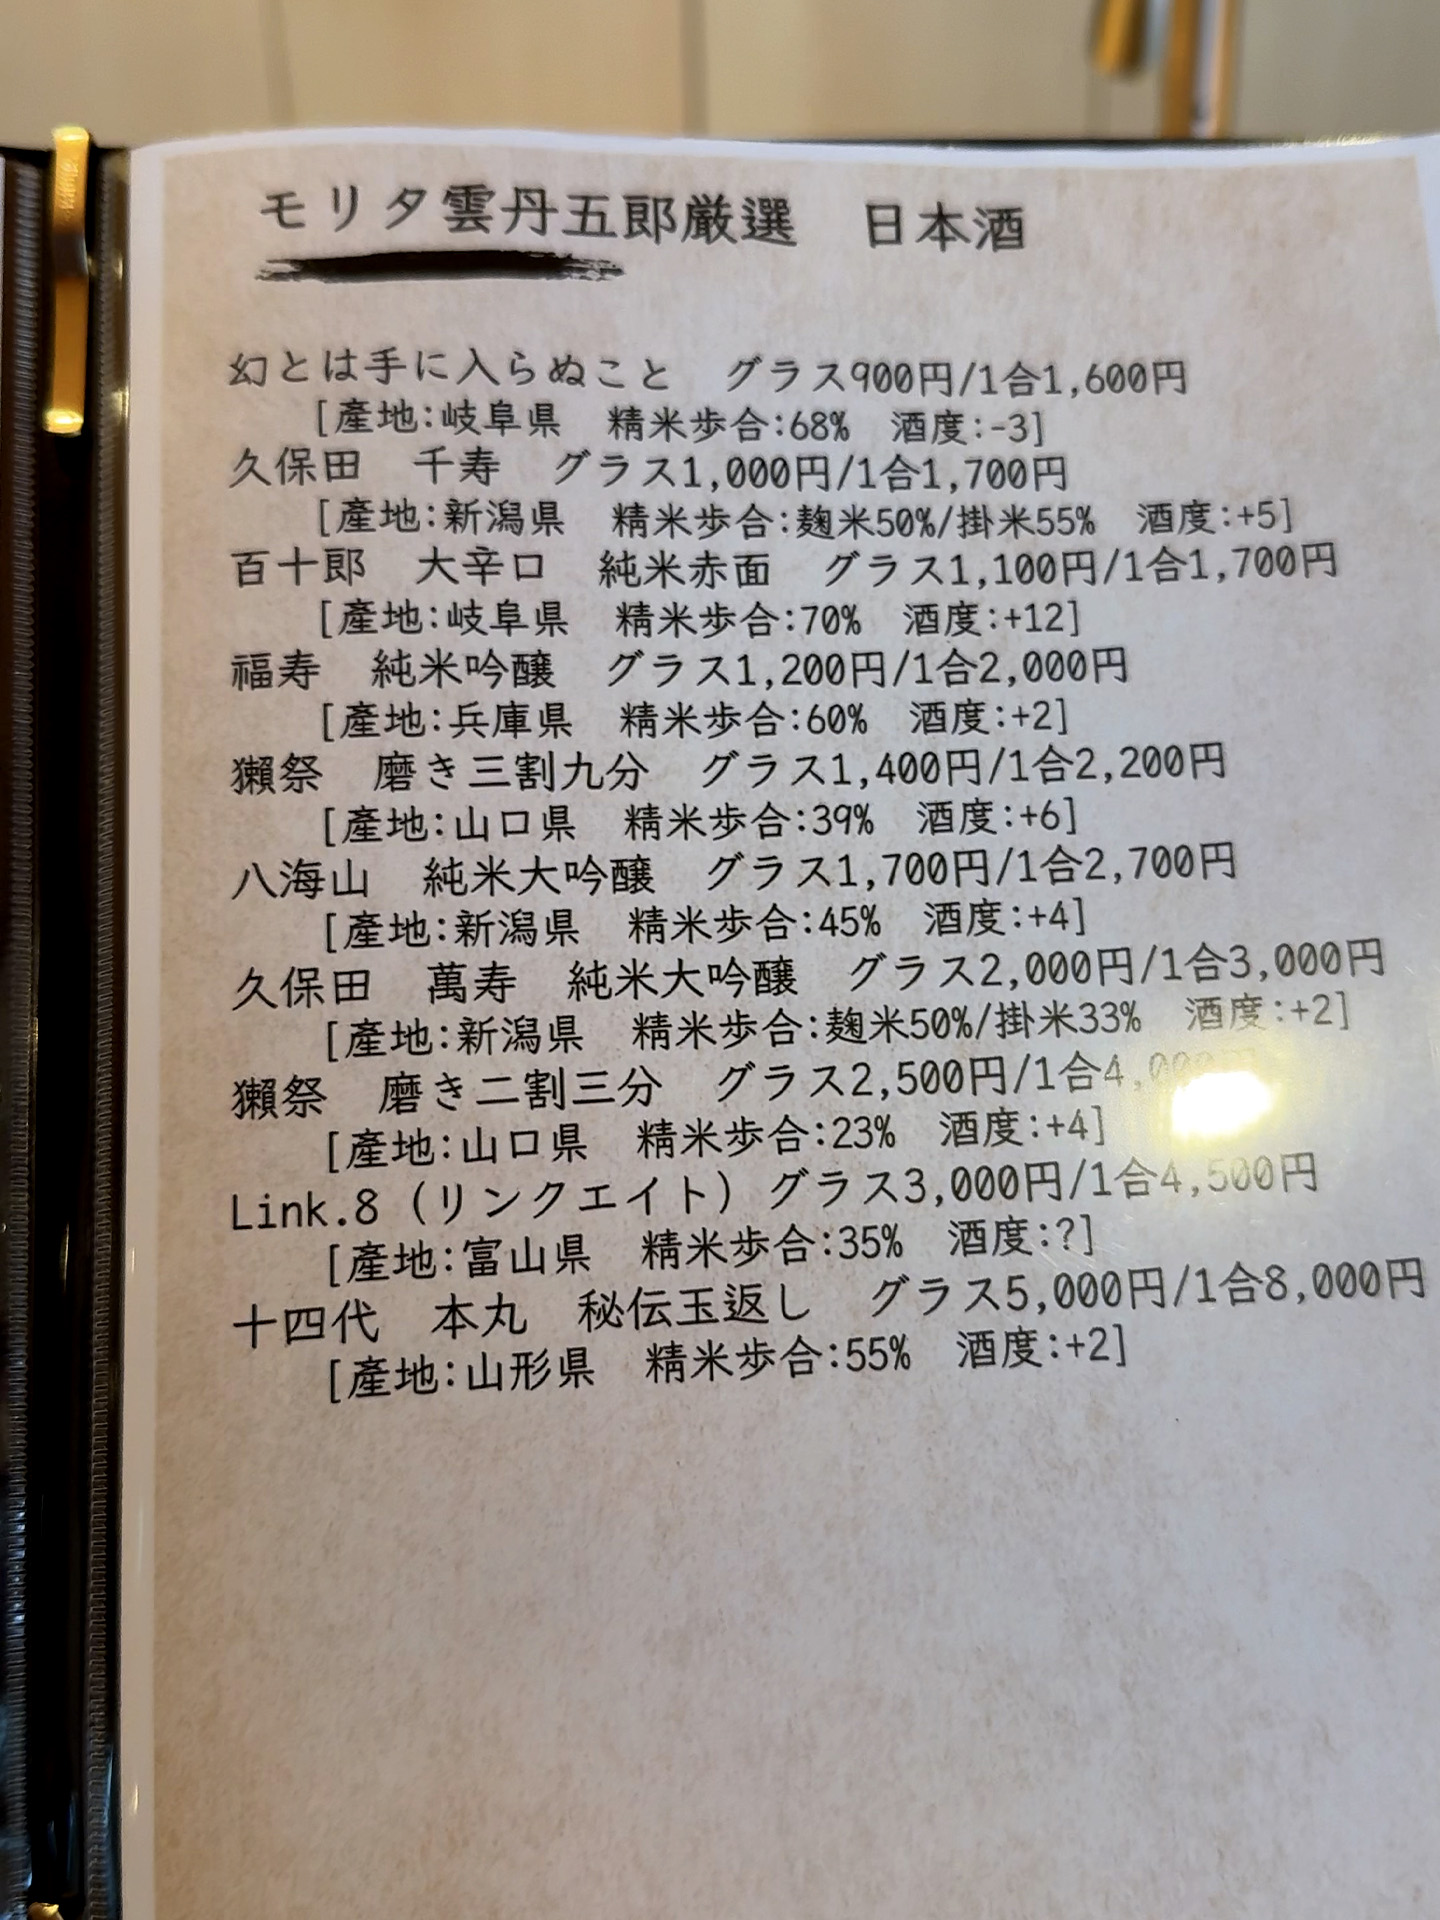 モリタ雲丹五郎厳選　日本酒
幻とは手に入らぬこと　グラス900円/1合1,600円
[産地:岐阜県　精米歩合:68%　酒度:-3]
久保田　千寿　グラス1,000円/1合1,700円
[産地:新潟県　精米歩合:麹米50%/掛米55%　酒度:+5]
百十郎　大辛口　純米赤面　グラス1,100円/1合1,700円
[産地:岐阜県　精米歩合:70%　酒度:+12]
福寿　純米吟醸　グラス1,200円/1合2,000円
[産地:兵庫県　精米歩合:60%　酒度:+2]
獺祭　磨き三割九分　グラス1,400円/1合2,200円
[産地:山口県　精米歩合:39%　酒度:+6]
八海山　純米大吟醸　グラス1,700円/1合2,700円
[産地:新潟県　精米歩合:45%　酒度:+4]
久保田　萬寿　純米大吟醸　グラス2,000円/1合3,000円
[産地:新潟県　精米歩合:麹米50%/掛米33%　酒度:+2]
獺祭　磨き二割三分　グラス2,500円/1合
[産地:山口県　精米歩合:23%　酒度:+4]
Link.8（リンクエイト）グラス3,000円/1合4,500円
[産地:富山県　精米歩合:35%　酒度:?]
十四代　本丸　秘伝玉返し　グラス5,000円/1合8,000円
[産地:山形県　精米歩合:55%　酒度:+2]